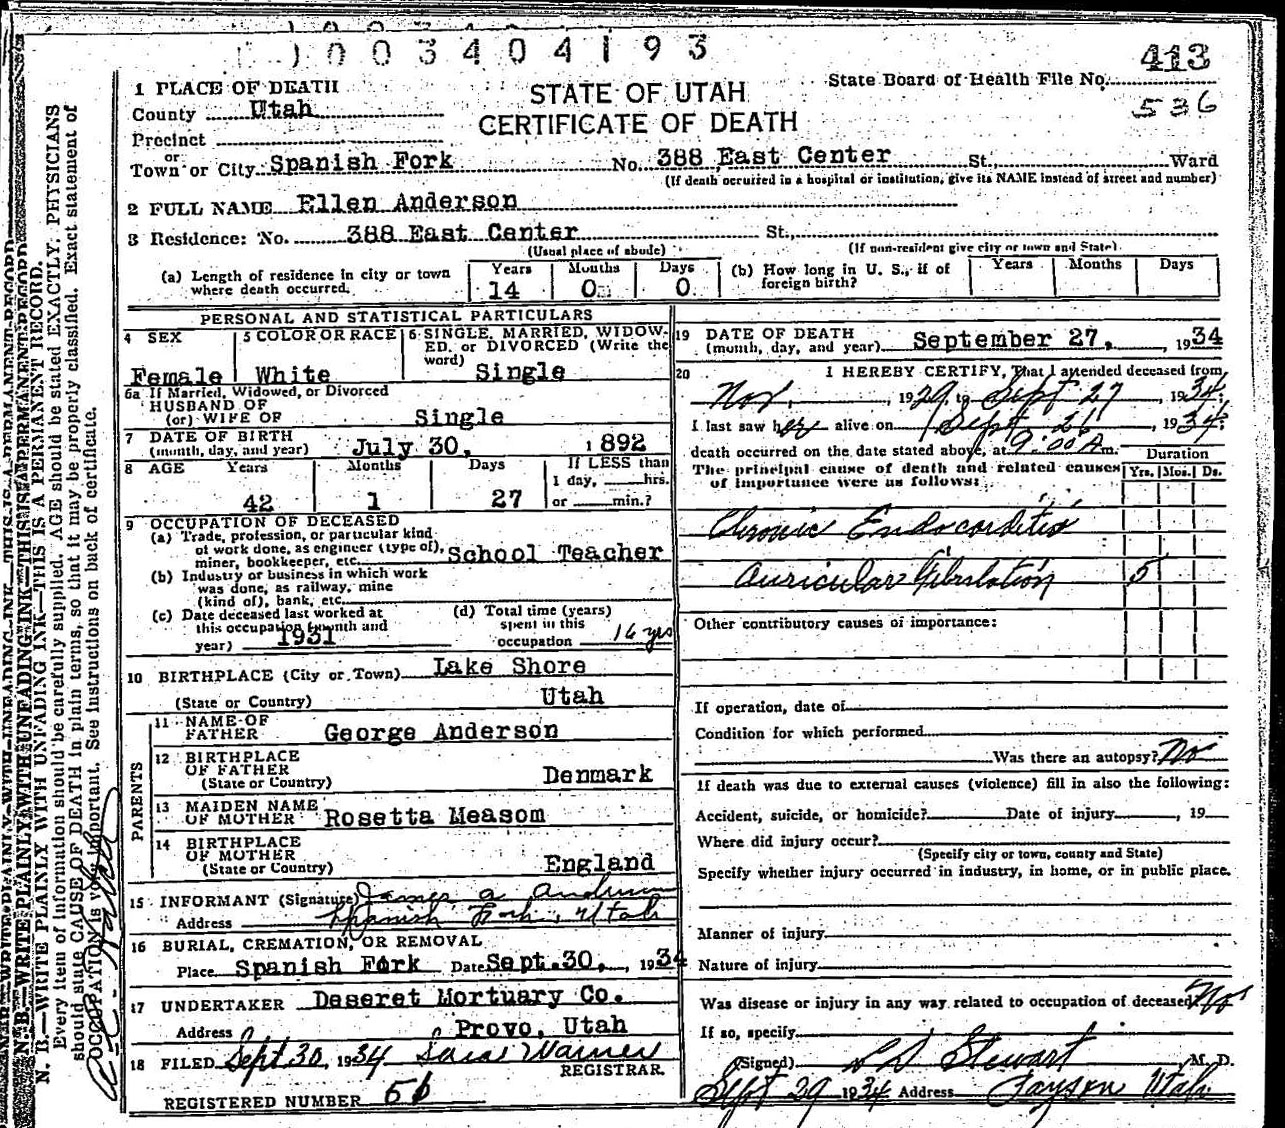 1003404193
413
State Board of Health File No.
536
STATE OF UTAH
CERTIFICATE OF DEATH
1 PLACE OF DEATH
County Utah
Precinct
or
Town or City Spanish Fork No. 388 East Center St., Ward
(If death occurred in a hospital or institution, give its NAME instead of street and number)
2 FULL NAME Ellen Anderson
3 Residence: No. 388 East Center St.,
(Usual place of abode) (If non-resident give city or town and State)
(a) Length of residence in city or town where death occurred. Years 14 Months 0 Days 0
(b) How long in U. S., if of foreign birth? Years Months Days
PERSONAL AND STATISTICAL PARTICULARS
4 SEX Female
5 COLOR OR RACE White
6 SINGLE, MARRIED, WIDOWED, or DIVORCED (Write the word) Single
6a If Married, Widowed, or Divorced
HUSBAND OF
(or) WIFE OF Single
7 DATE OF BIRTH
(month, day, and year) July 30, 1892
8 AGE Years 42 Months 1 Days 27 If LESS than 1 day, hrs. or min.?
9 OCCUPATION OF DECEASED
(a) Trade, profession, or particular kind
of work done, as engineer (type of),
miner, bookkeeper, etc. School Teacher
(b) Industry or business in which work
was done, as railway, mine
(kind of), bank, etc.
(c) Date deceased last worked at
this occupation (month and
year) 1931
(d) Total time (years)
spent in this
occupation 16 yrs
10 BIRTHPLACE (City or Town) Lake Shore
(State or Country) Utah
PARENTS
11 NAME OF
FATHER George Anderson
12 BIRTHPLACE
OF FATHER
(State or Country) Denmark
13 MAIDEN NAME
OF MOTHER Rosetta Measom
14 BIRTHPLACE
OF MOTHER
(State or Country) England
15 INFORMANT (Signature) James A Anderson
Address Spanish Fork, Utah
16 BURIAL, CREMATION, OR REMOVAL
Place Spanish Fork Date Sept. 30, 1934
17 UNDERTAKER Deseret Mortuary Co.
Address Provo, Utah
18 FILED Sept 30, 1934 Warner
REGISTRAR.
REGISTERED NUMBER
19 DATE OF DEATH
(month, day, and year) September 27, 1934
20 I HEREBY CERTIFY, That I attended deceased from
Nov. 1929 to Sept 27 1934.
I last saw her alive on Sept 26, 1934.
death occurred on the date stated above, at 9:00 A m.
The principal cause of death and related causes
of importance were as follows:
Duration
Yrs. Mos. Ds.
Chronic Endocarditis
Auricular Fibrilation 5
Other contributory causes of importance:
If operation, date of
Condition for which performed
Was there an autopsy? No
If death was due to external causes (violence) fill in also the following:
Accident, suicide, or homicide? Date of injury , 19
Where did injury occur?
(Specify city or town, county and State)
Specify whether injury occurred in industry, in home, or in public place.
Manner of injury
Nature of injury
Was disease or injury in any way related to occupation of deceased No
If so, specify
(Signed) L D Stewart M. D.
Sept 29 1934 Address Payson Utah
N. B.—WRITE PLAINLY WITH UNFADING INK—THIS IS A PERMANENT RECORD.
Every item of information should be carefully supplied. AGE should be stated EXACTLY. PHYSICIANS
should state CAUSE OF DEATH in plain terms, so that it may be properly classified. Exact statement of
OCCUPATION is very important. See instructions on back of certificate.